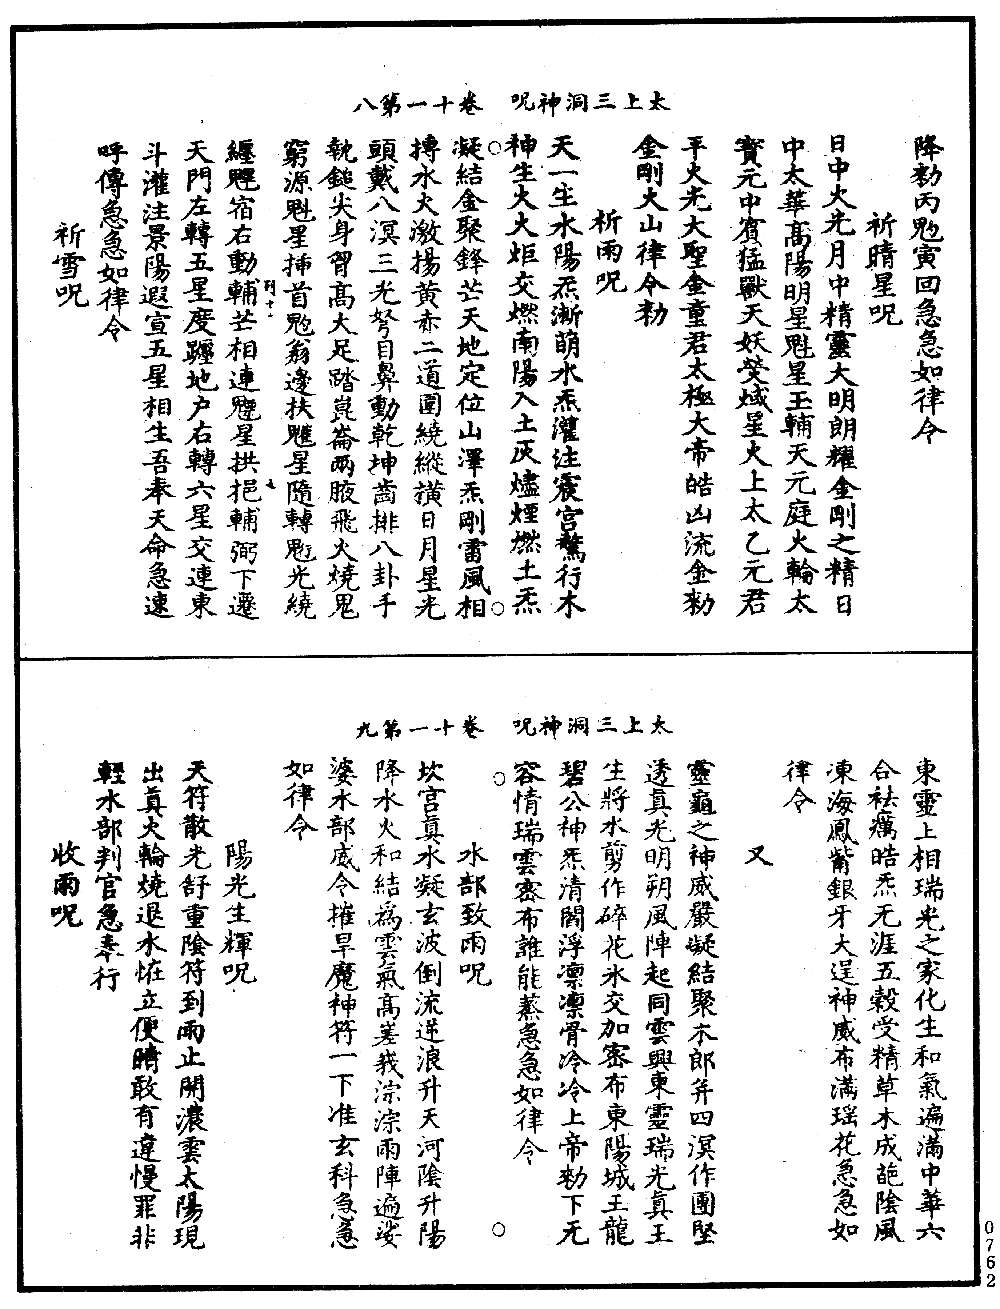 太上三洞神呪　卷十一第八
降勑丙魁寅回急急如律令
祈晴星呪
日中火光月中精靈大明朗耀金剛之精日
中太華高陽明星魁星玉輔天元庭火輪太
寳元中賔猛獸天妖熒惑星火上太乙元君
平火光大聖金童君太極大帝皓凶流金勑
金剛火山律令勑
祈雨呪
天一生水陽炁漸萌水炁灌注震宮驚行木
神生火火炬交燃南陽入土灰燼煙燃土炁
凝結金聚鋒芒天地定位山澤炁剛雷風相
摶水火激揚黄赤二道圍繞縱橫日月星光
頭戴八溟三光努目鼻動乾坤齒排八卦手
執鎚尖身胷高大足踏崑崙兩腋飛火燒鬼
窮源魁星揷首魒翁邊扶魋星隨轉魒光繞
纏魓宿右動輔芒相連魓星拱挹輔弼下遷
天門左轉五星度躔地户右轉六星交連東
斗灌注景陽遐宣五星相生吾奉天命急速
呼傳急急如律令
祈雪呪
太上三洞神呪　卷十一第九
東靈上相瑞光之家化生和氣遍滿中華六
合袪癘皓炁无涯五穀受精草木成葩陰風
凍海鳳觜銀牙大逞神威布滿瑶花急急如
律令
又
靈龜之神威嚴凝結聚木郎并四溟作團堅
透眞光明朔風陣起同雲興東靈瑞光眞王
生將水剪作碎花氷交加密布東陽城王龍
碧公神炁清閻浮凛凛骨冷冷上帝勑下无
容情瑞雲密布誰能蒸急急如律令
水部致雨呪
坎宮眞水凝玄波倒流逆浪升天河陰升陽
降水火和結爲雲氣高嵯峩淙淙雨陣遍娑
婆水部威令摧旱魔神符一下准玄科急急
如律令
陽光生輝呪
天符散光舒重陰符到雨止開濃雲太陽現
出眞火輪燒退水恠立便晴敢有違慢罪非
輕水部判官急奉行
收雨呪
0762